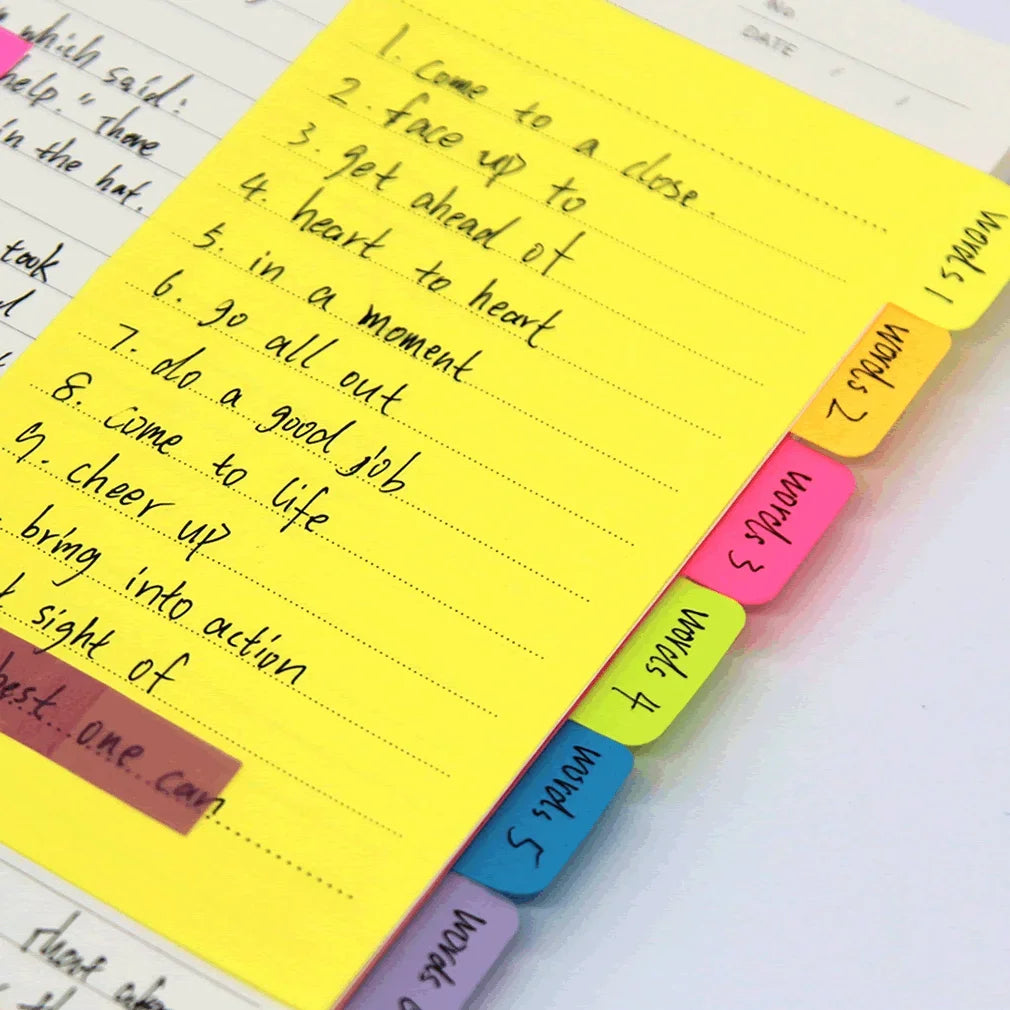 which said:
help." There
in the hat.
took
No
DATE
1. come to a close.
2. face up to
3. get ahead of
4. heart to heart
5. in a moment
6. go all out
7. do a good job
8. come to life
9. cheer up
bring into action
sight of
best one can
words 1
words 2
words 3
words 4
words 5
words